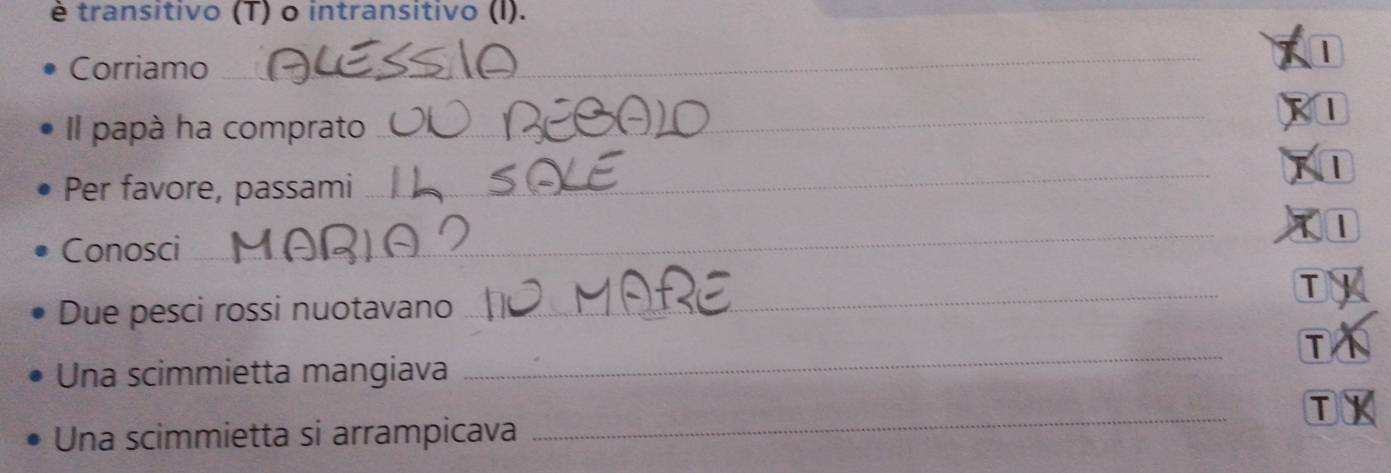 è transitivo (T) o intransitivo (I).
• Corriamo ALESSIA T I
• Il papà ha comprato UU REGALO T I
• Per favore, passami IL SALE T I
• Conosci MARIA? T I
• Due pesci rossi nuotavano NO MARE T I
• Una scimmietta mangiava T I
• Una scimmietta si arrampicava T I